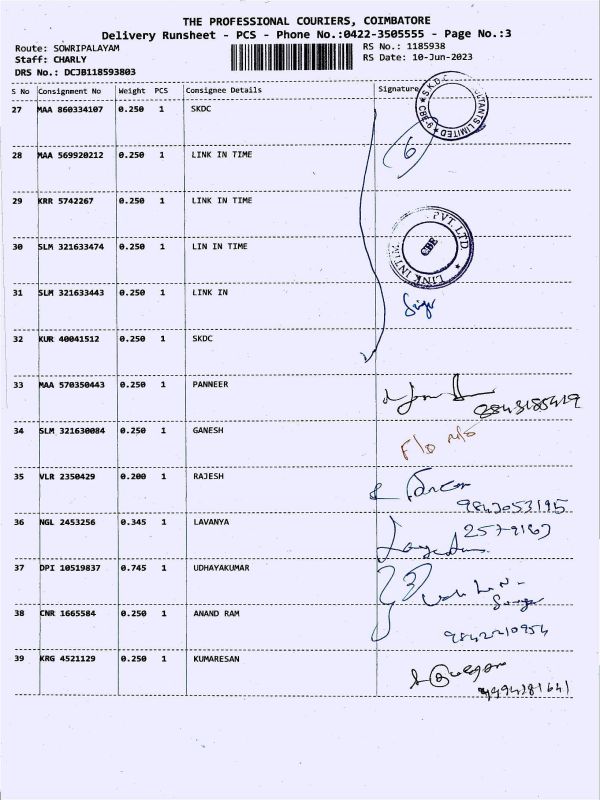 THE PROFESSIONAL COURIERS, COIMBATORE
Delivery Runsheet - PCS - Phone No.:0422-3505555 - Page No.:3
Route: SOWRIPALAYAM RS No.: 1185938
Staff: CHARLY RS Date: 10-Jun-2023
DRS No.: DCJB118593803
S No Consignment No Weight PCS Consignee Details Signature
27 MAA 860334107 0.250 1 SKDC
28 MAA 569920212 0.250 1 LINK IN TIME
29 KRR 5742267 0.250 1 LINK IN TIME
30 SLM 321633474 0.250 1 LIN IN TIME
31 SLM 321633443 0.250 1 LINK IN
32 KUR 40041512 0.250 1 SKDC
33 MAA 570350443 0.250 1 PANNEER
34 SLM 321630084 0.250 1 GANESH
35 VLR 2350429 0.200 1 RAJESH
36 NGL 2453256 0.345 1 LAVANYA
37 DPI 10519837 0.745 1 UDHAYAKUMAR
38 CNR 1665584 0.250 1 ANAND RAM
39 KRG 4521129 0.250 1 KUMARESAN
SKDC
LTANTS LIMITED
CBE-9
6
PVT. LTD.
LINK INTIM
CBE
9843053195
9842210954